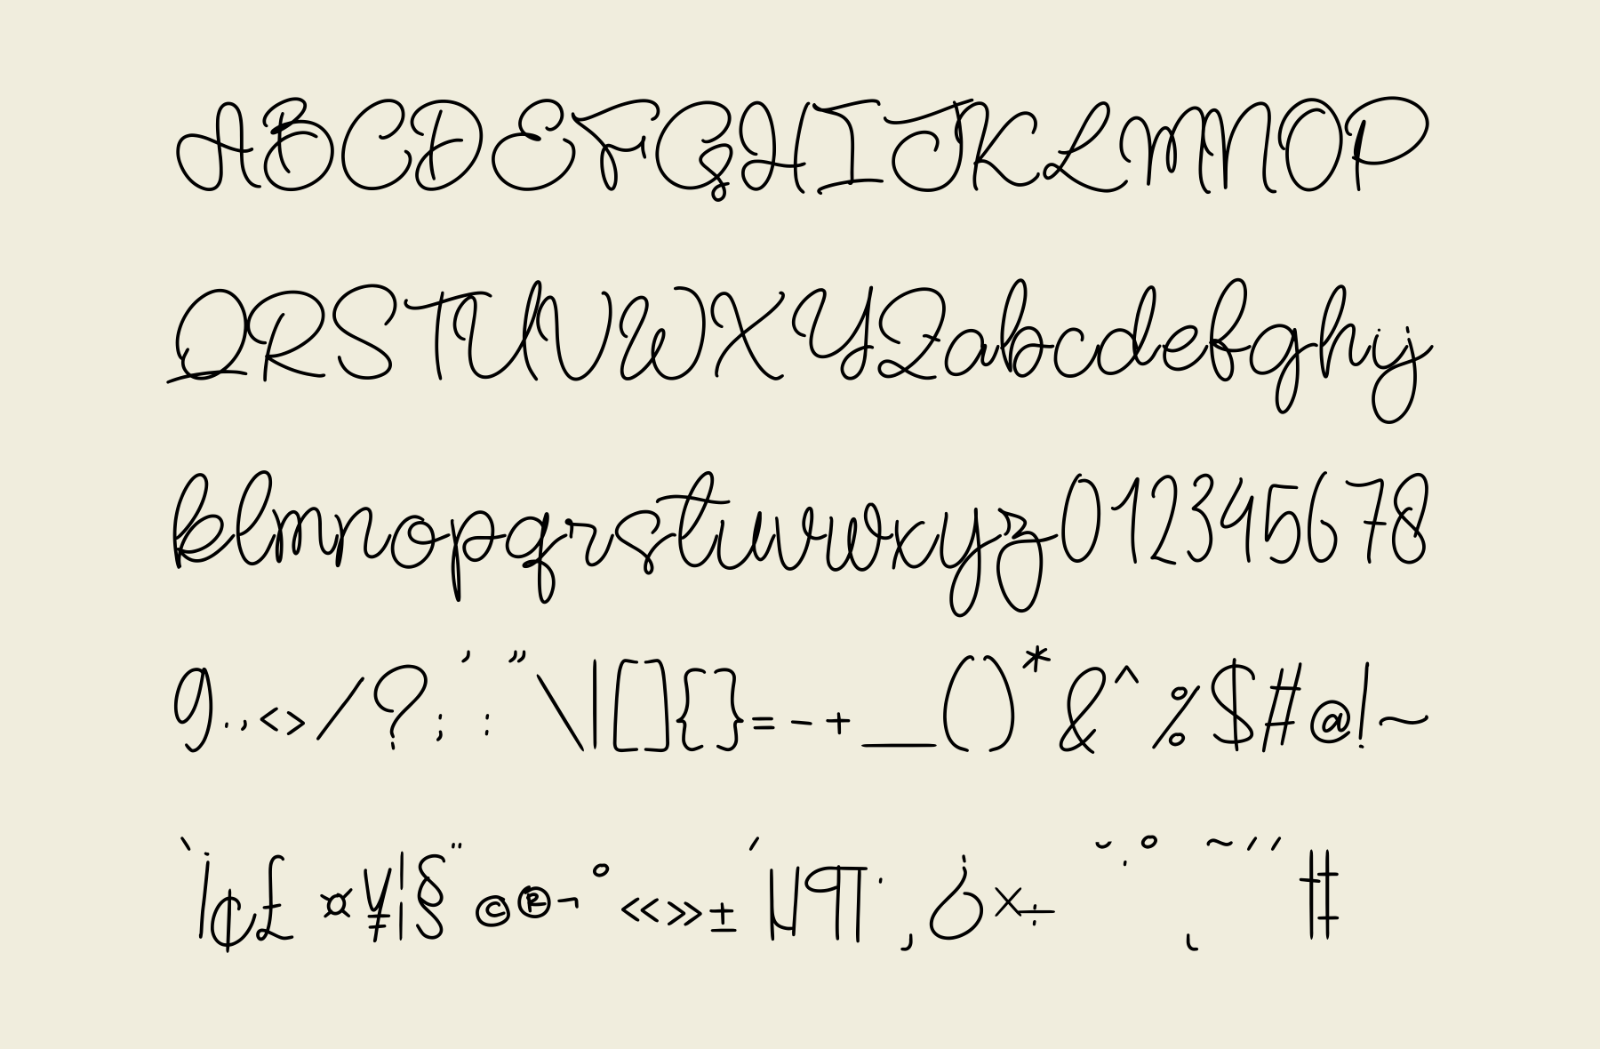 ABCDEFGHIJKLMNOP
QRSTUVWXYZabcdefghij
klmnopqrstuvwxyz012345678
9.,<>/?;':"\|[]{}=-+_()*&^%$#@!~
`¡¢£¤¥¦§¨©®¬°«»±´µ¶·¸¿×÷˘˙˚˛˜˝‡